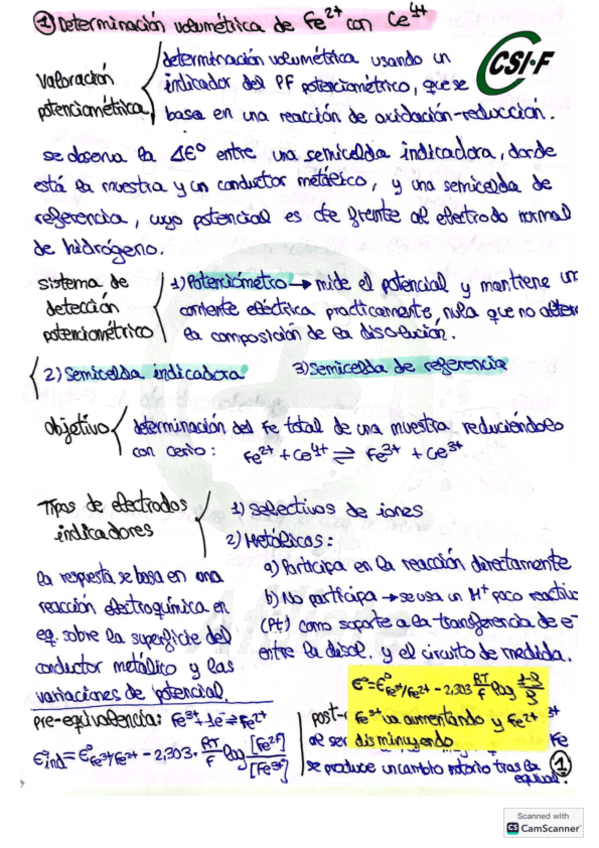 ① Determinación volumétrica de Fe²⁺ con Ce⁴⁺
Valoración potenciométrica
determinación volumétrica usando un
indicador del PF potenciométrico, que se
basa en una reacción de oxidación-reducción.
CSI·F
se observa la ΔE° entre una semicelda indicadora, donde
está la muestra y un conductor metálico, y una semicelda de
referencia, cuyo potencial es cte frente al electrodo normal
de hidrógeno.
sistema de detección potenciométrico
1) Potenciómetro → mide el potencial y mantiene un
corriente eléctrica practicamente, nula que no alter
la composición de la disolución.
2) Semicelda indicadora
3) Semicelda de referencia
objetivo
determinación del Fe total de una muestra reduciéndolo
con cerio: Fe²⁺ + Ce⁴⁺ ⇌ Fe³⁺ + Ce³⁺
Tipos de electrodos indicadores
1) Selectivos de iones
2) Metálicos:
a) Participa en la reacción directamente
b) No participa → se usa un M⁺ poco reactiv
(Pt) como soporte a la transferencia de e⁻
entre la disol. y el circuito de medida.
la respuesta se basa en una
reacción electroquímica en
eq. sobre la superficie del
conductor metálico y las
variaciones de potencial.
pre-equivalencia: Fe³⁺ + 1e⁻ ⇌ Fe²⁺
E°ind = E°Fe³⁺/Fe²⁺ − 2,303 · RT/F log [Fe²⁺]/[Fe³⁺]
E° = E°Fe³⁺/Fe²⁺ − 2,303 RT/F log
post-
Fe³⁺ va aumentando y Fe²⁺
disminuyendo
al ser
3+
Fe
se produce un cambio notorio tras la
equival.
①
Scanned with
CS CamScanner